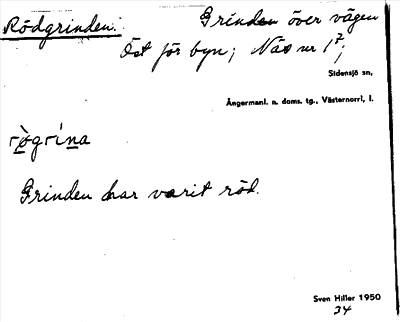 Rödgrinden. Grinden över vägen
Öst för byn; Näs nr 1⁷;
Sidensjö sn,
Ångermanl. n. doms. tg., Västernorrl, l.
rògrína
Grinden har varit röd.
Sven Hiller 1950
34